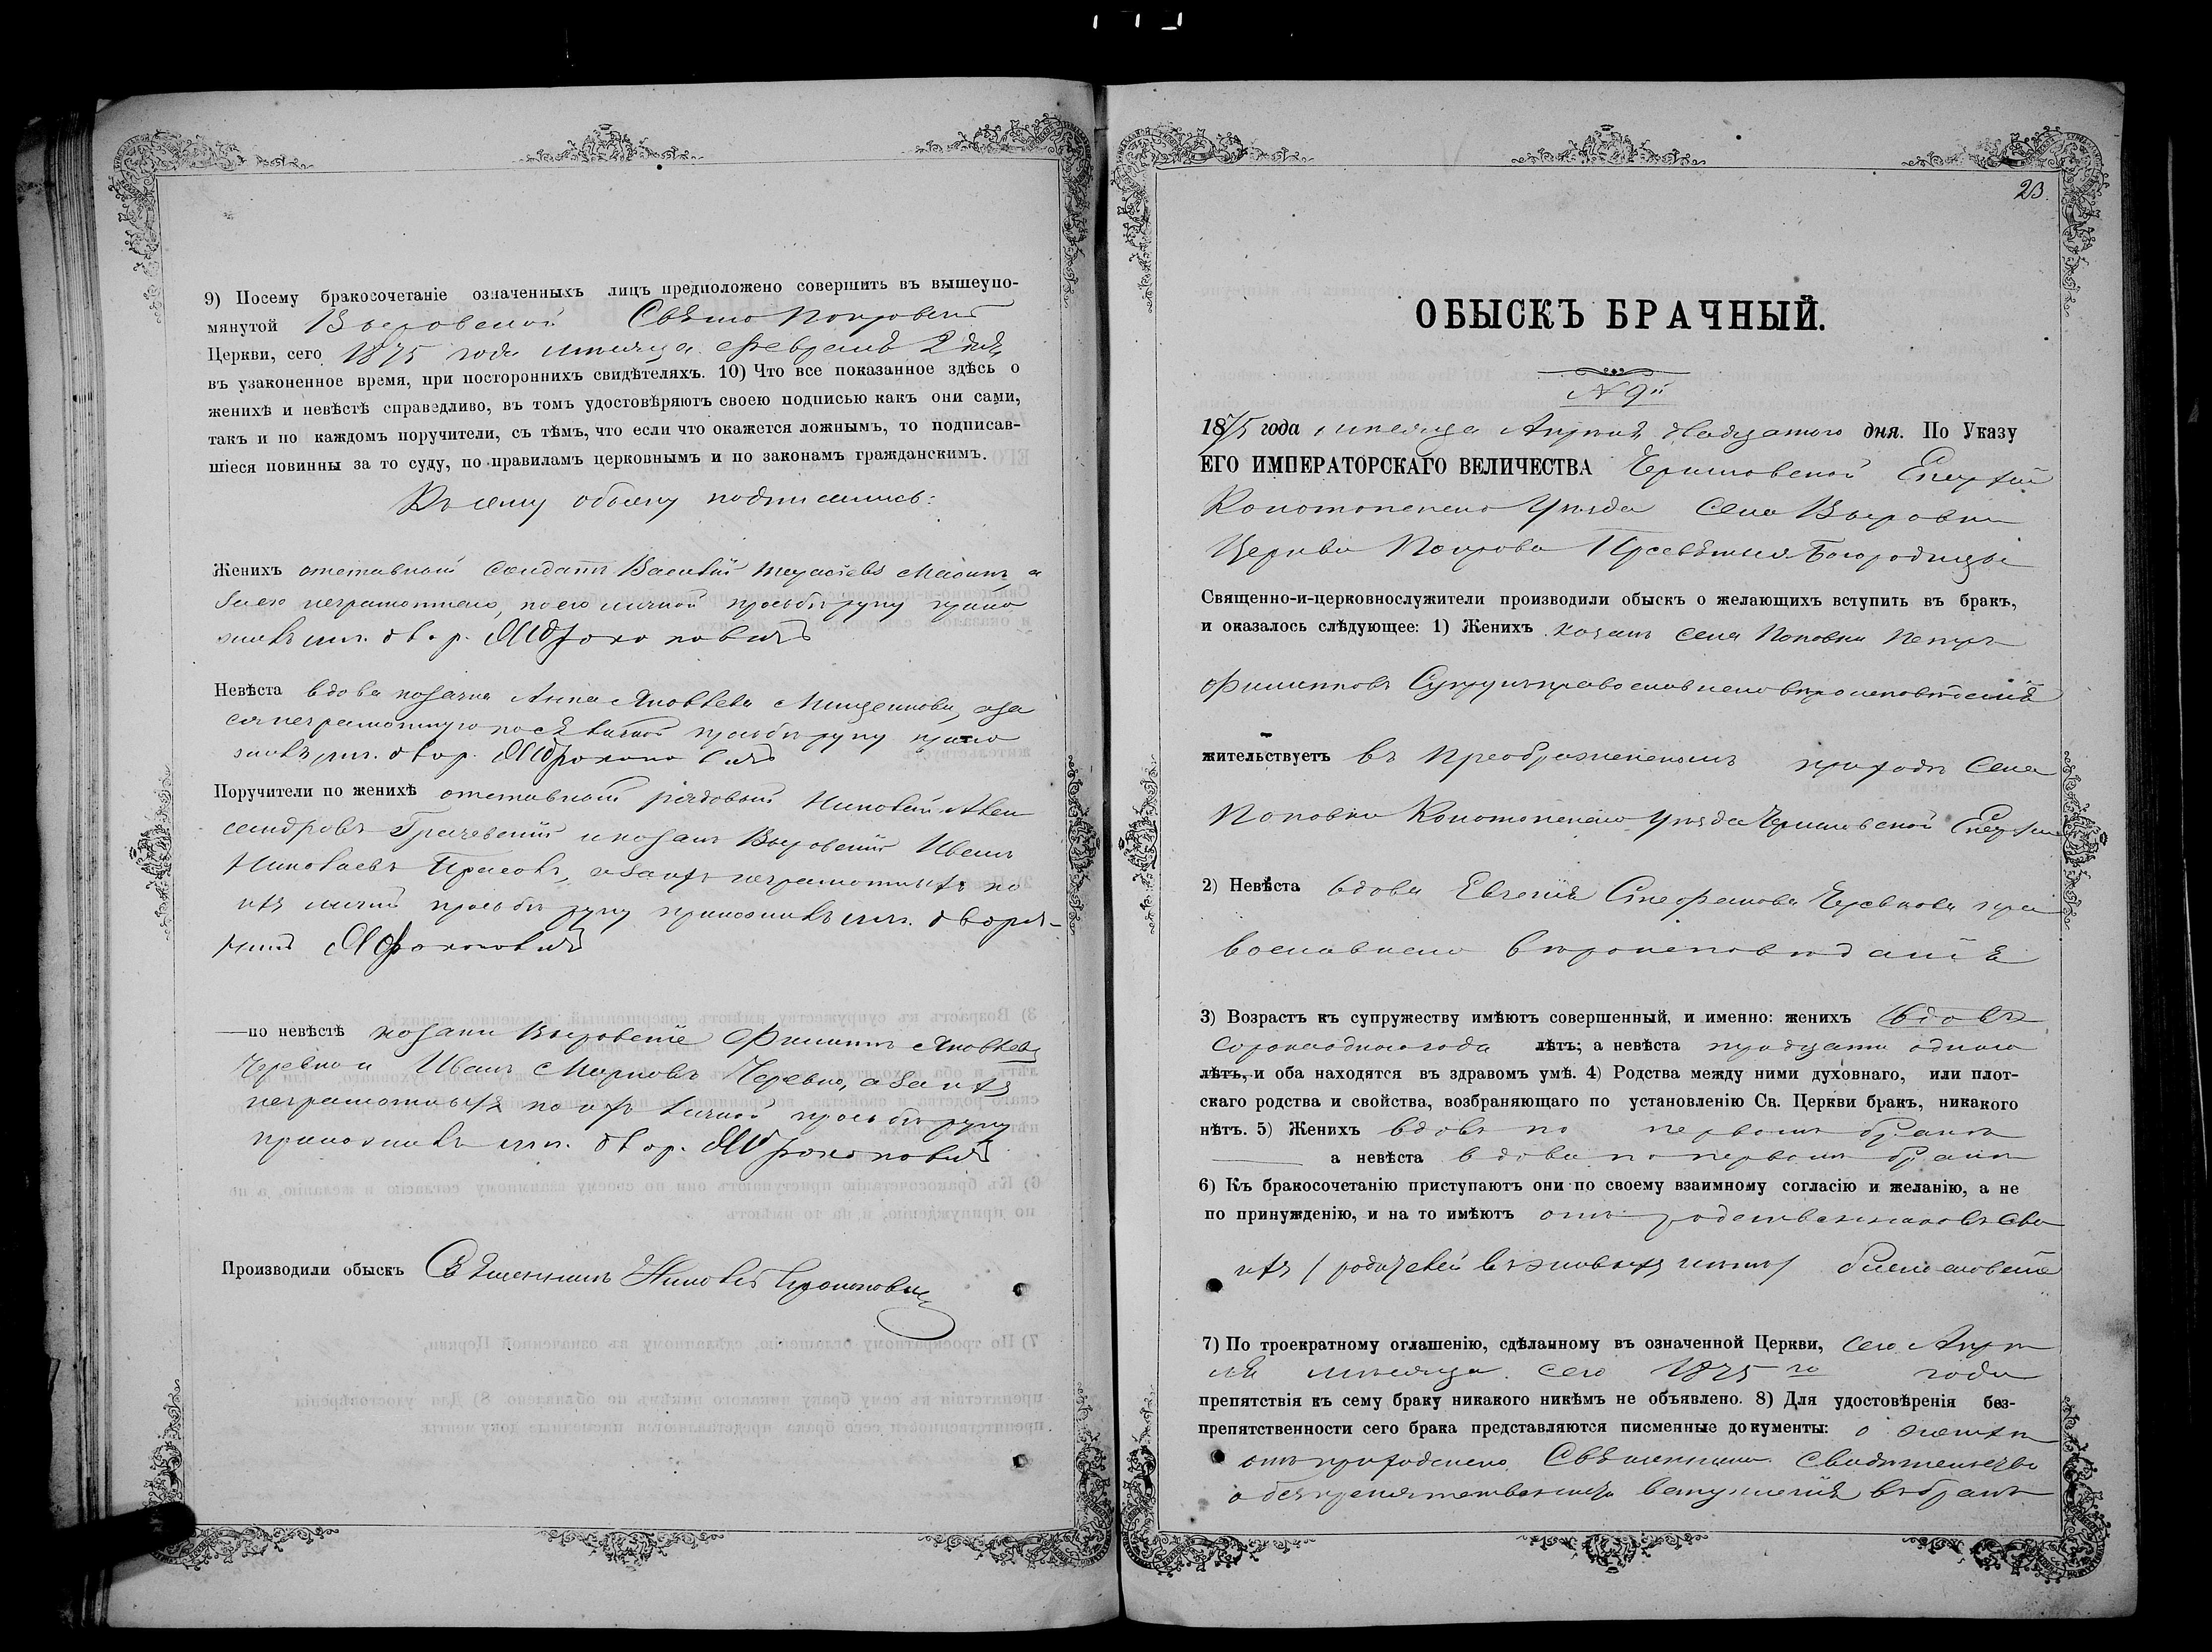 9) Посему бракосочетаніе означенныхъ лицъ предположено совершить въ вышеупо-
мянутой Выровской Свято Покровской
Церкви, сего 1875 года месяца Февраля 2 дня
въ узаконенное время, при постороннихъ свидѣтеляхъ. 10) Что все показанное здѣсь о
женихѣ и невѣстѣ справедливо, въ томъ удостовѣряютъ своею подписью какъ они сами,
такъ и по каждомъ поручители, съ тѣмъ, что если что окажется ложнымъ, то подписав-
шіеся повинны за то суду, по правиламъ церковнымъ и по законамъ гражданскимъ.
Къ сему обыску подписались:
Женихъ отставной солдатъ Василій
неграмотнаго, по его личной просьбѣ руку прило
жилъ двор.
Невѣста вдова козачка Анна Яковлева а за
ея неграмотную по ея личной просьбѣ руку прило
жилъ двор.
Поручители по женихѣ отставной рядовый Николай Алек
сандровъ и козакъ Выровскій Иванъ
Николаевъ а за ихъ неграмотныхъ по
ихъ личной просьбѣ руку приложилъ дворя-
нинъ
—по невѣстѣ козаки Выровскіе Филиппъ Яковлевъ
Черевко и Иванъ Марковъ Черевко, а за ихъ
неграмотныхъ по ихъ личной просьбѣ руку
приложилъ двор.
Производили обыскъ Священникъ
23.
ОБЫСКЪ БРАЧНЫЙ.
№ 9й
1875 года месяца Апреля двадцатого дня. По Указу
ЕГО ИМПЕРАТОРСКАГО ВЕЛИЧЕСТВА Черниговской Епархіи
Конотопскаго Уезда Села Выровки
Церкви Покрова Пресвятыя Богородицы
Священно-и-церковнослужители производили обыскъ о желающихъ вступить въ бракъ,
и оказалось слѣдующее: 1) Женихъ козакъ села Поповки Петръ
Филипповъ православнаго вероисповеданія
жительствуетъ въ Преображенскомъ приходе Села
Поповки Конотопскаго уезда Черниговской Епархіи
2) Невѣста вдова Евгенія Стефанова пра
вославнаго вероисповеданія
3) Возрастъ къ супружеству имѣютъ совершенный, и именно: женихъ вдовъ
сорокаодного года лѣтъ; а невѣста тридцати одного
лѣтъ, и оба находятся въ здравомъ умѣ. 4) Родства между ними духовнаго, или плот-
скаго родства и свойства, возбраняющаго по установленію Св. Церкви бракъ, никакого
нѣтъ. 5) Женихъ вдовъ по первомъ браке
а невѣста вдова по первомъ браке
6) Къ бракосочетанію приступаютъ они по своему взаимному согласію и желанію, а не
по принужденію, и на то имѣютъ отъ родственниковъ сво
ихъ (родителей въ живыхъ нетъ) благословеніе
7) По троекратному оглашенію, сдѣланному въ означенной Церкви, сего Апре
ля месяца сего 1875 го года
препятствія къ сему браку никакого никѣмъ не объявлено. 8) Для удостовѣренія без-
препятственности сего брака представляются писменные документы: о женихе
отъ приходскаго Священника свидетельство
о безпрепятственномъ вступленіи въ бракъ